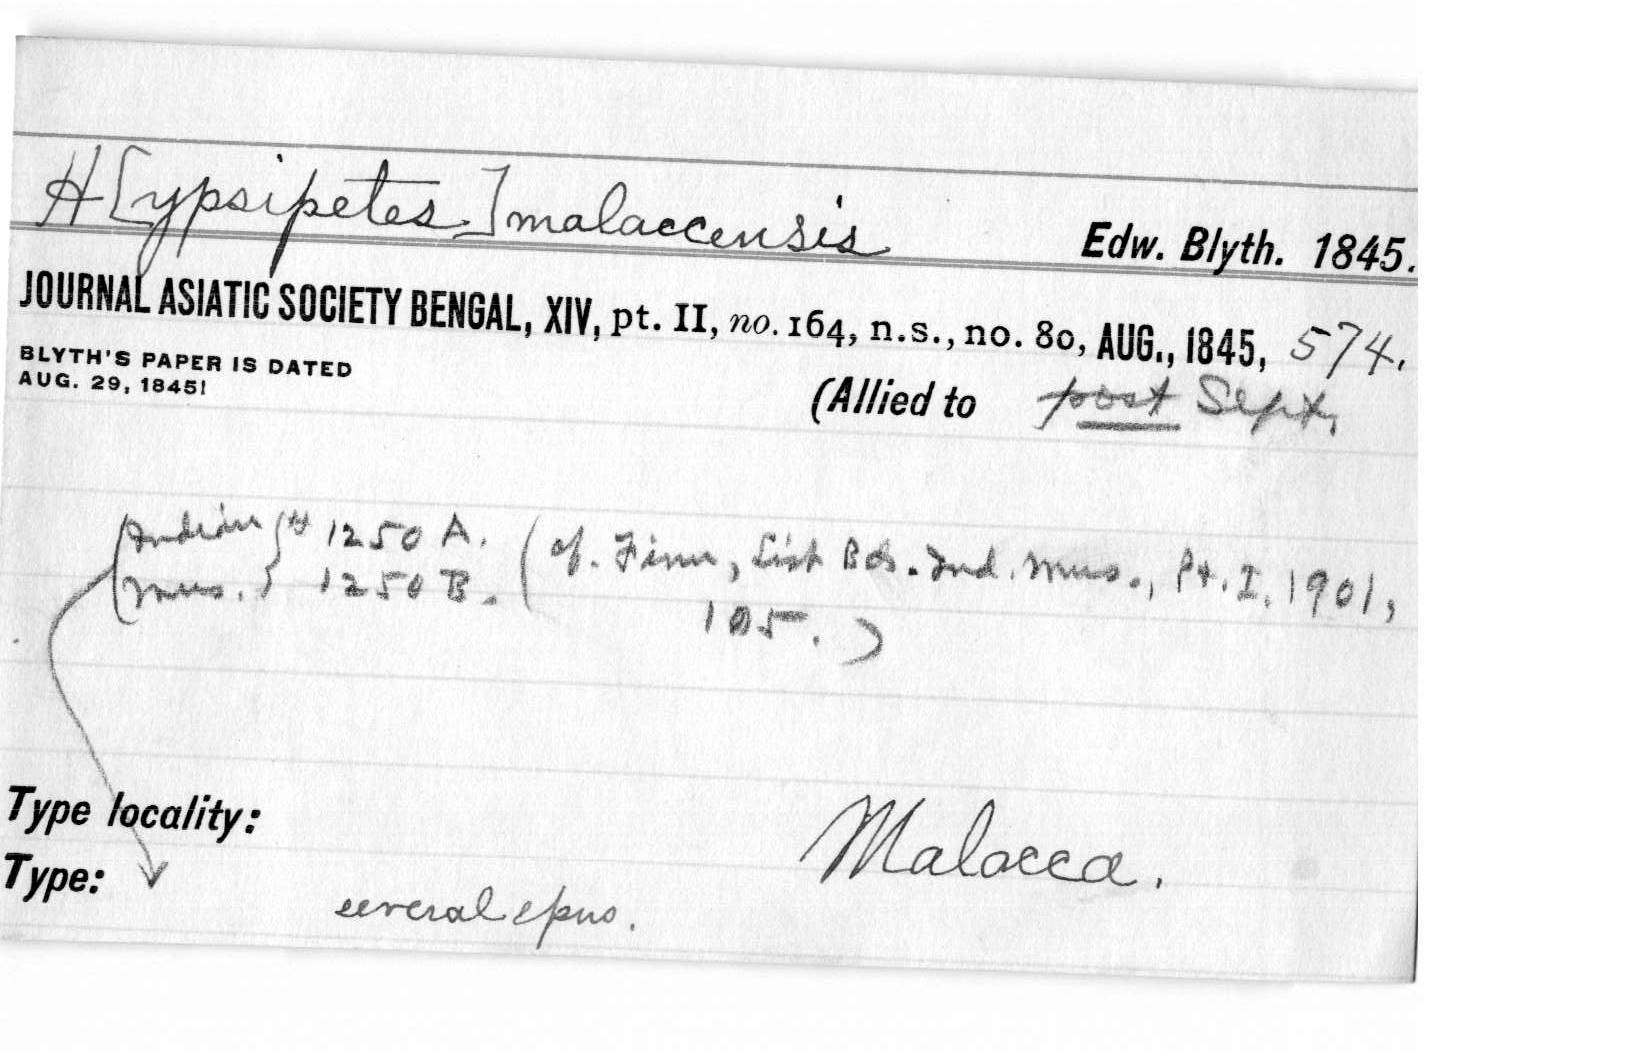 H[ypsipetes] malaccensis Edw. Blyth. 1845.
JOURNAL ASIATIC SOCIETY BENGAL, XIV, pt. II, no. 164, n.s., no. 80, AUG., 1845, 574.
BLYTH'S PAPER IS DATED
AUG. 29, 1845!
(Allied to post Sept.
(Indian } # 1250 A. (cf. Finn, List Bds. Ind. Mus., Pt. I, 1901,
(Mus. } 1250 B. 105.)
Type locality: Malacca.
Type: several spns.